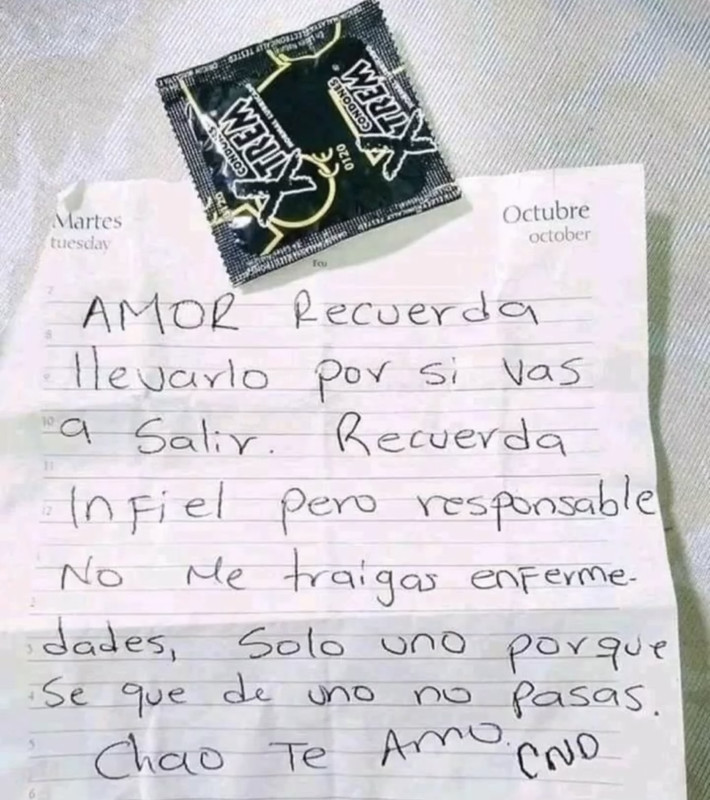 XTREM
CONDONES
XTREM
CONDONES
0120
Martes
tuesday
Octubre
october
AMOR Recuerda
llevarlo por si vas
a Salir. Recuerda
Infiel pero responsable
No Me traigas enferme-
dades, Solo uno porque
Se que de uno no pasas.
Chao Te Amo. CND